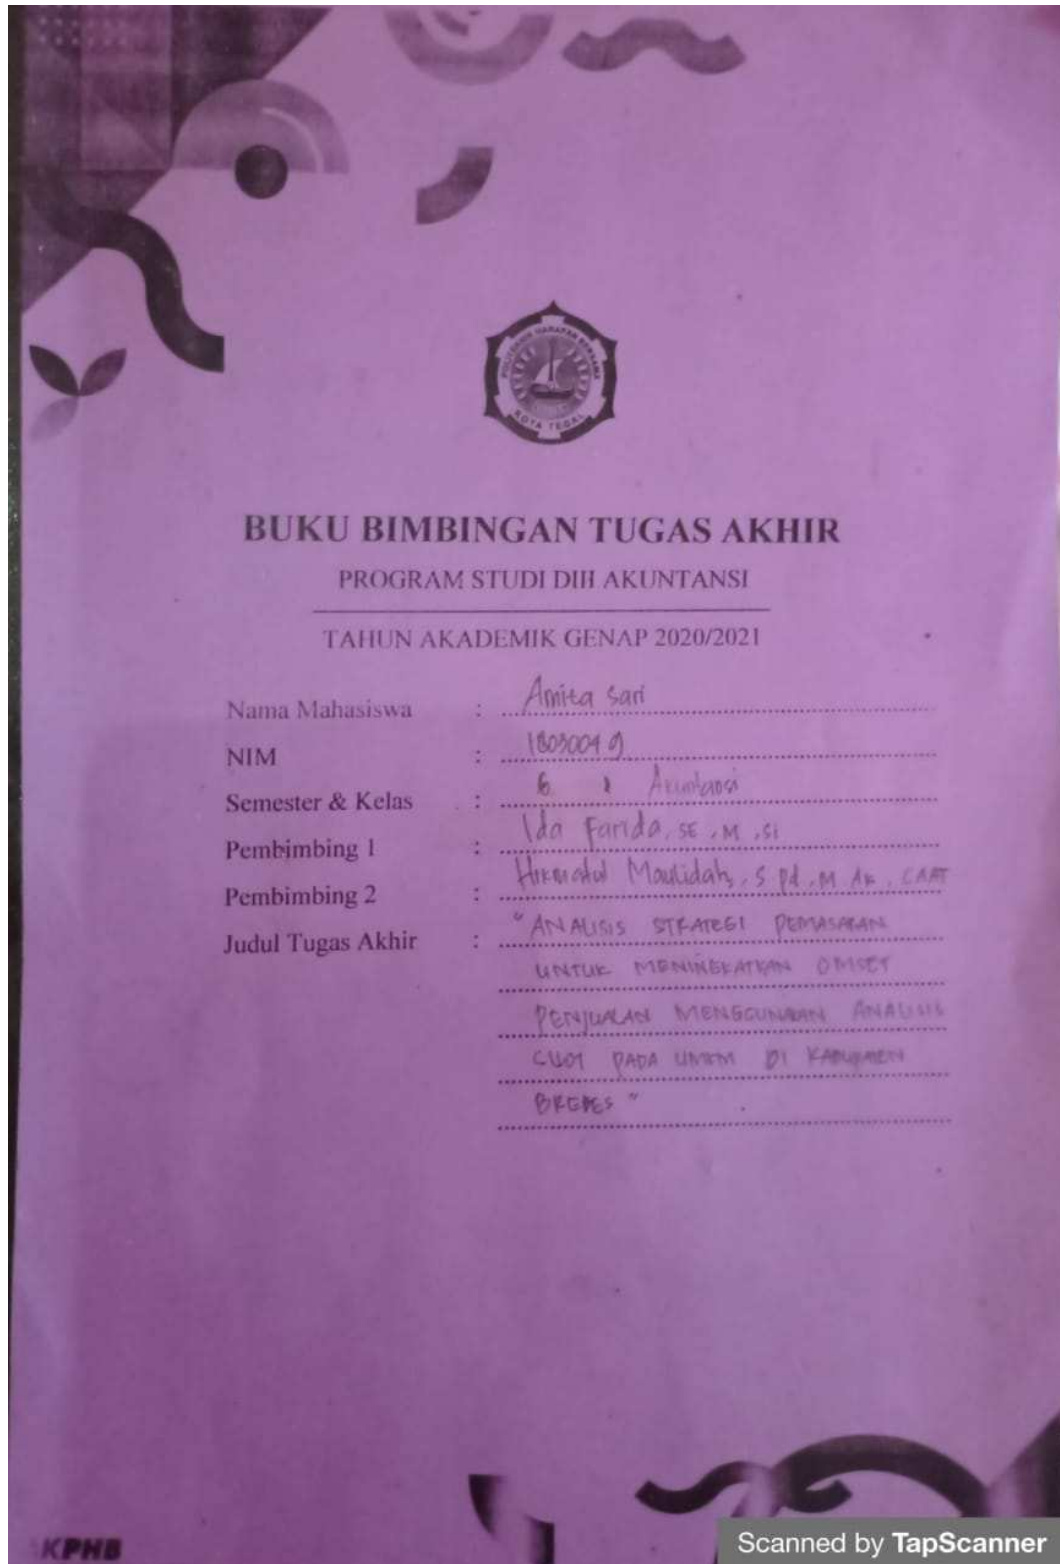 POLITEKNIK HARAPAN BERSAMA
KOTA TEGAL
BUKU BIMBINGAN TUGAS AKHIR
PROGRAM STUDI DIII AKUNTANSI
TAHUN AKADEMIK GENAP 2020/2021
Nama Mahasiswa : Amita Sari
NIM : 18030049
Semester & Kelas : 6 Akuntansi
Pembimbing 1 : Ida Farida, SE, M, Si
Pembimbing 2 : Hikmatul Maulidah, S Pd, M Ak, CAAT
Judul Tugas Akhir : "ANALISIS STRATEGI PEMASARAN
UNTUK MENINGKATKAN OMSET
PENJUALAN MENGGUNAKAN ANALISIS
PADA UMKM DI KABUPATEN
BREBES"
KPHB
Scanned by TapScanner